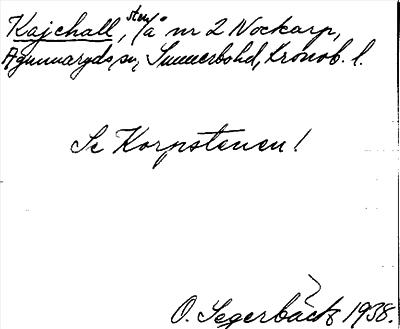 Kajehall, stuf/å nr 2 Nockarp,
Agunnaryds sn, Sunnerbohd, Kronob. l.
Se Korpstenen!
O. Segerbäck 1938.